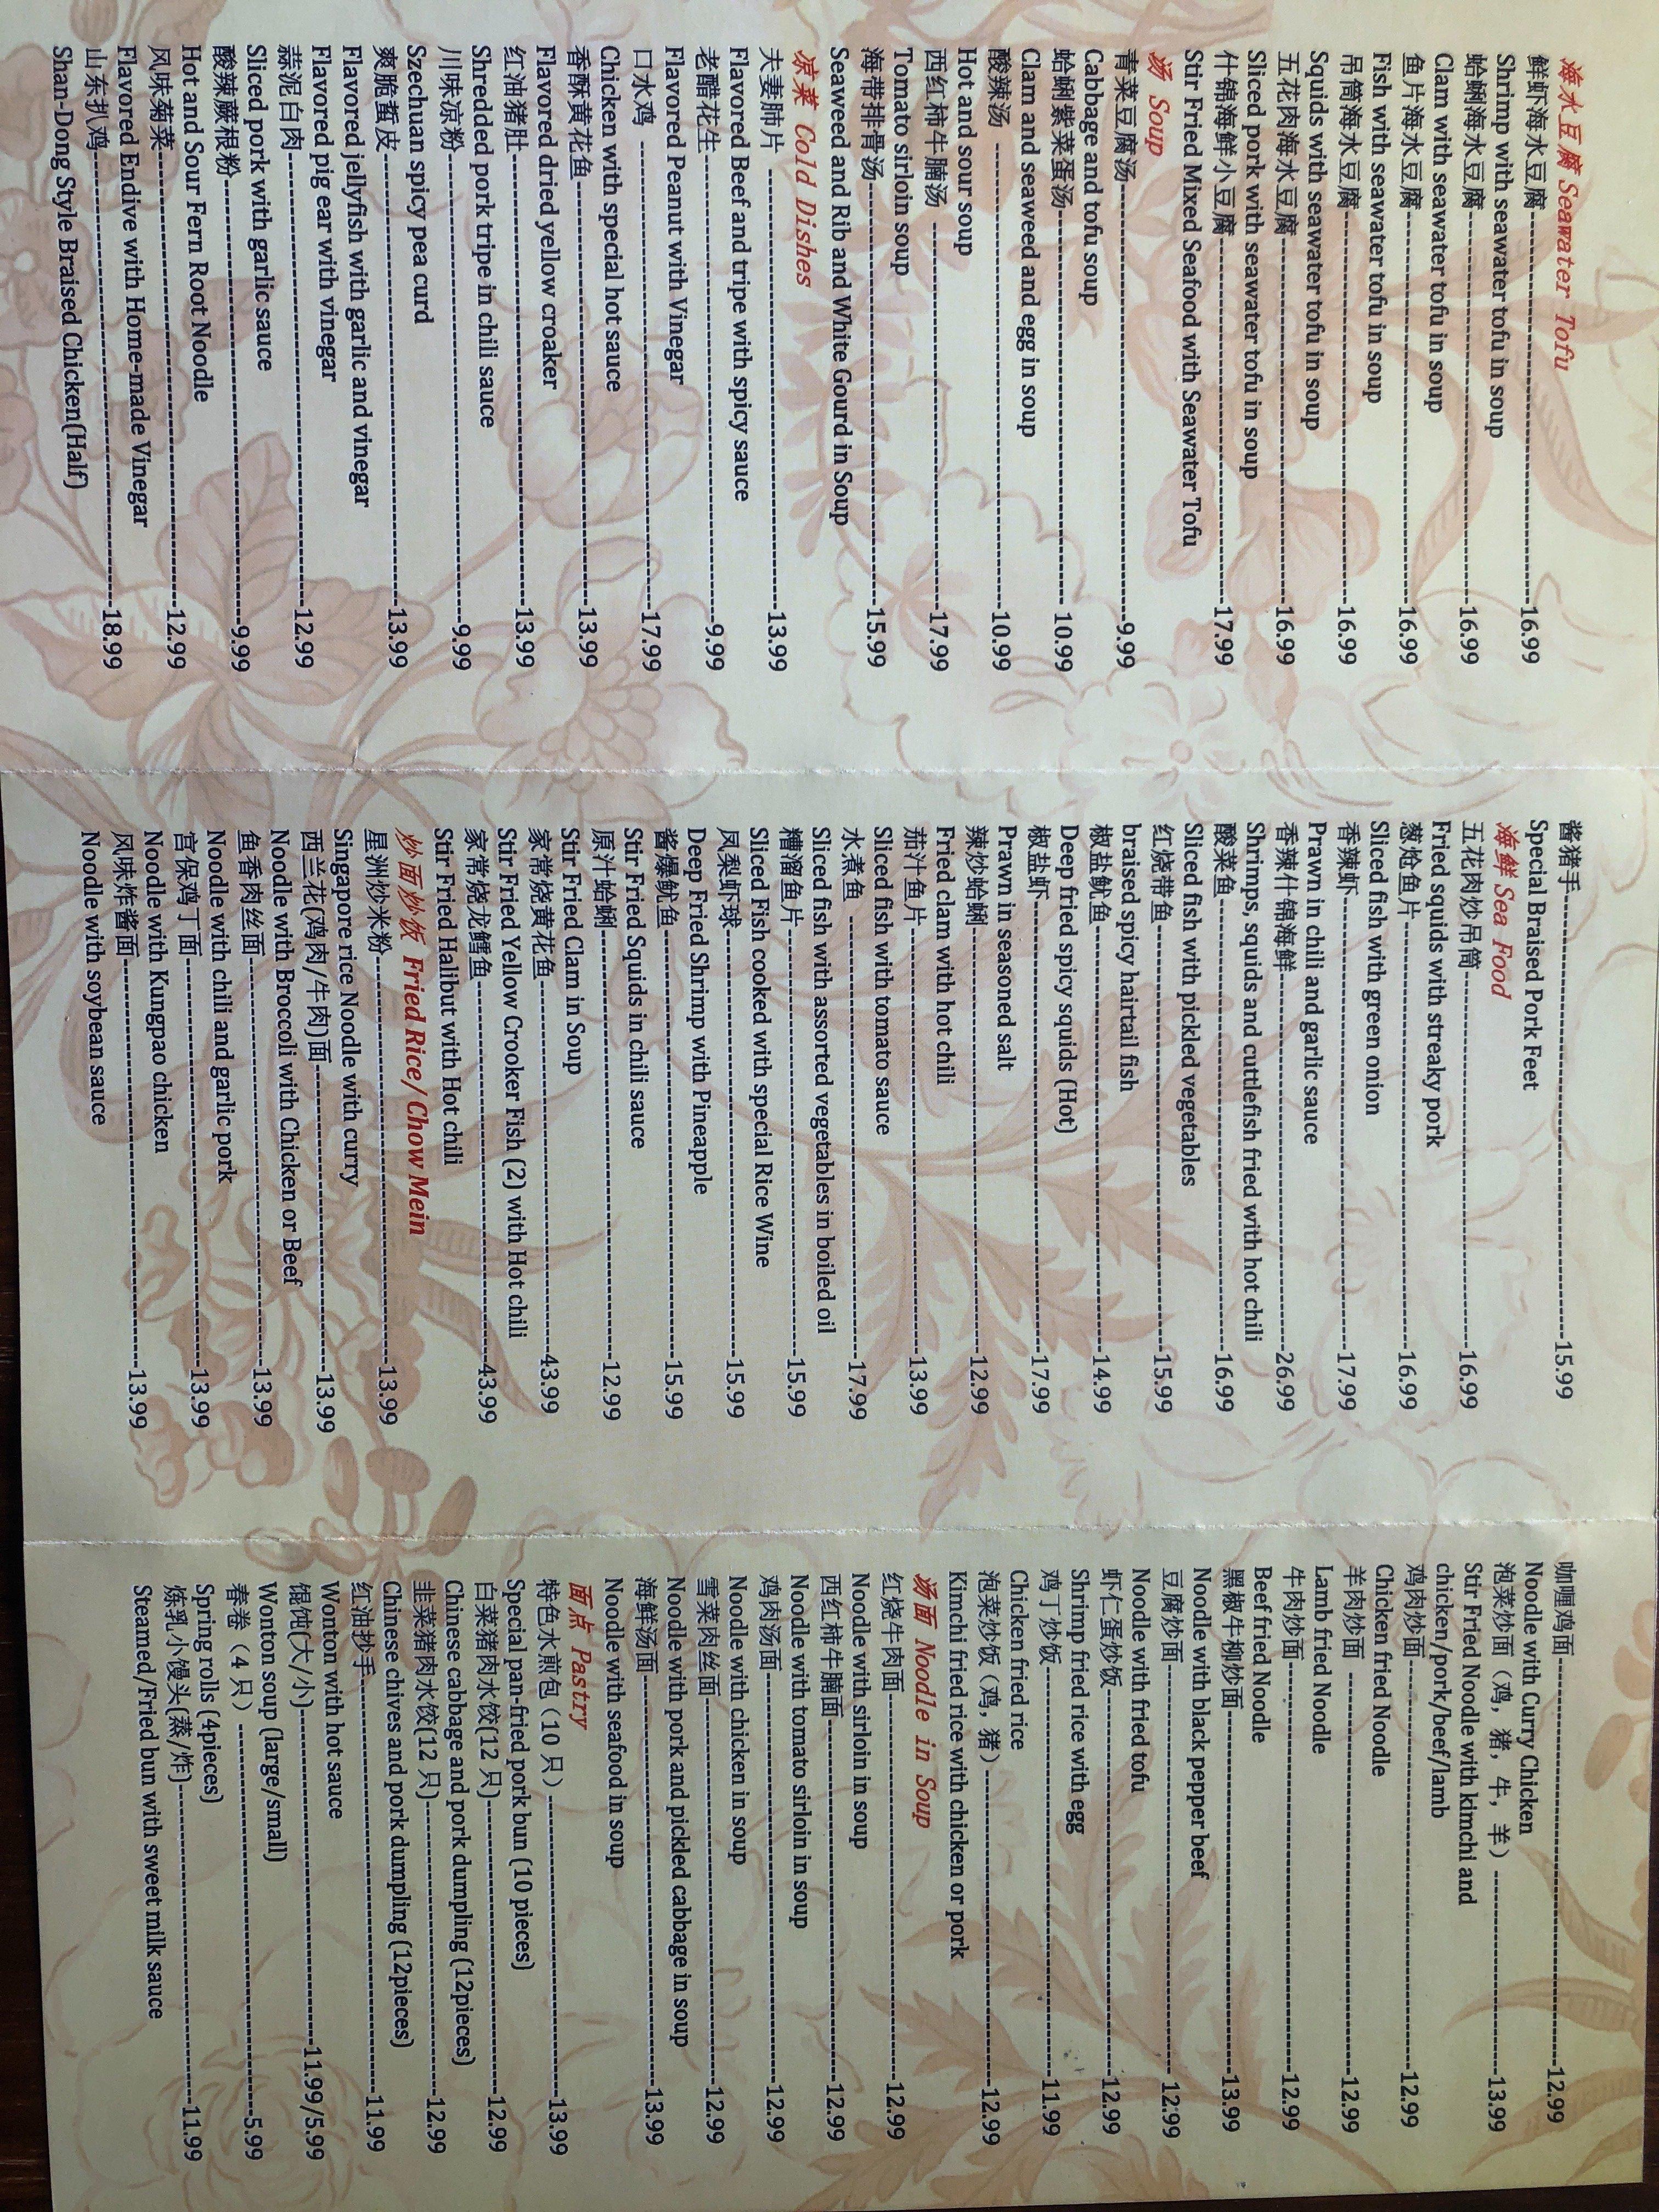 海水豆腐 Seawater Tofu
鲜虾海水豆腐----16.99
Shrimp with seawater tofu in soup
蛤蜊海水豆腐----16.99
Clam with seawater tofu in soup
鱼片海水豆腐----16.99
Fish with seawater tofu in soup
吊筒海水豆腐----16.99
Squids with seawater tofu in soup
五花肉海水豆腐----16.99
Sliced pork with seawater tofu in soup
什锦海鲜小豆腐----17.99
Stir Fried Mixed Seafood with Seawater Tofu
汤 Soup
青菜豆腐汤----9.99
Cabbage and tofu soup
蛤蜊紫菜蛋汤----10.99
Clam and seaweed and egg in soup
酸辣汤 ----10.99
Hot and sour soup
西红柿牛腩汤 ----17.99
Tomato sirloin soup
海带排骨汤----15.99
Seaweed and Rib and White Gourd in Soup
凉菜 Cold Dishes
夫妻肺片 ----13.99
Flavored Beef and tripe with spicy sauce
老醋花生----9.99
Flavored Peanut with Vinegar
口水鸡 ----17.99
Chicken with special hot sauce
香酥黄花鱼----13.99
Flavored dried yellow croaker
红油猪肚----13.99
Shredded pork tripe in chili sauce
川味凉粉----9.99
Szechuan spicy pea curd
爽脆蜇皮----13.99
Flavored jellyfish with garlic and vinegar
Flavored pig ear with vinegar
蒜泥白肉----12.99
Sliced pork with garlic sauce
酸辣蕨根粉----9.99
Hot and Sour Fern Root Noodle
风味菊菜----12.99
Flavored Endive with Home-made Vinegar
山东扒鸡----18.99
Shan-Dong Style Braised Chicken(Half)
酱猪手----15.99
Special Braised Pork Feet
海鲜 Sea Food
五花肉炒吊筒----16.99
Fried squids with streaky pork
葱烩鱼片----16.99
Sliced fish with green onion
香辣虾----17.99
Prawn in chili and garlic sauce
香辣什锦海鲜----26.99
Shrimps, squids and cuttlefish fried with hot chili
酸菜鱼----16.99
Sliced fish with pickled vegetables
红烧带鱼----15.99
braised spicy hairtail fish
椒盐鱿鱼----14.99
Deep fried spicy squids (Hot)
椒盐虾----17.99
Prawn in seasoned salt
辣炒蛤蜊----12.99
Fried clam with hot chili
茄汁鱼片----13.99
Sliced fish with tomato sauce
水煮鱼 ----17.99
Sliced fish with assorted vegetables in boiled oil
糟溜鱼片----15.99
Sliced Fish cooked with special Rice Wine
凤梨虾球----15.99
Deep Fried Shrimp with Pineapple
酱爆鱿鱼----15.99
Stir Fried Squids in chili sauce
原汁蛤蜊----12.99
Stir Fried Clam in Soup
家常烧黄花鱼----43.99
Stir Fried Yellow Crooker Fish (2) with Hot chili
家常烧龙鳕鱼----43.99
Stir Fried Halibut with Hot chili
炒面炒饭 Fried Rice/Chow Mein
星洲炒米粉----13.99
Singapore rice Noodle with curry
西兰花(鸡肉/牛肉)面----13.99
Noodle with Broccoli with Chicken or Beef
鱼香肉丝面----13.99
Noodle with chili and garlic pork
宫保鸡丁面----13.99
Noodle with Kungpao chicken
风味炸酱面----13.99
Noodle with soybean sauce
咖喱鸡面----12.99
Noodle with Curry Chicken
泡菜炒面（鸡，猪，牛，羊）----13.99
Stir Fried Noodle with kimchi and
chicken/pork/beef/lamb
鸡肉炒面----12.99
Chicken fried Noodle
羊肉炒面 ----12.99
Lamb fried Noodle
牛肉炒面----12.99
Beef fried Noodle
黑椒牛柳炒面----13.99
Noodle with black pepper beef
豆腐炒面----12.99
Noodle with fried tofu
虾仁蛋炒饭----12.99
Shrimp fried rice with egg
鸡丁炒饭----11.99
Chicken fried rice
泡菜炒饭（鸡，猪）----12.99
Kimchi fried rice with chicken or pork
汤面 Noodle in Soup
红烧牛肉面----12.99
Noodle with sirloin in soup
西红柿牛腩面----12.99
Noodle with tomato sirloin in soup
鸡肉汤面----12.99
Noodle with chicken in soup
雪菜肉丝面----12.99
Noodle with pork and pickled cabbage in soup
海鲜汤面----13.99
Noodle with seafood in soup
面点 Pastry
特色水煎包（10 只）----13.99
Special pan-fried pork bun (10 pieces)
白菜猪肉水饺(12 只)----12.99
Chinese cabbage and pork dumpling (12pieces)
韭菜猪肉水饺(12 只)----12.99
Chinese chives and pork dumpling (12pieces)
红油抄手----11.99
Wonton with hot sauce
馄饨(大/小)----11.99/5.99
Wonton soup (large/small)
春卷（4 只）----5.99
Spring rolls (4pieces)
炼乳小馒头(蒸/炸)----11.99
Steamed/Fried bun with sweet milk sauce